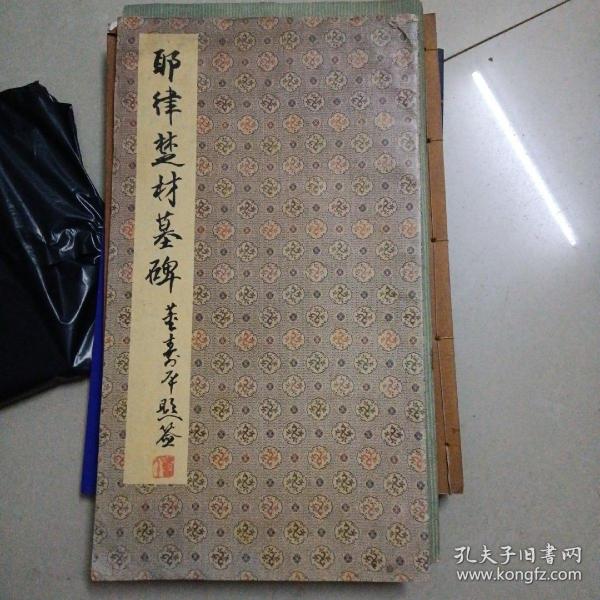 耶律楚材墓碑
董寿平题签
孔夫子旧書网
www.kongfz.com